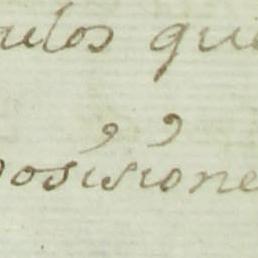 ulos que
osisione